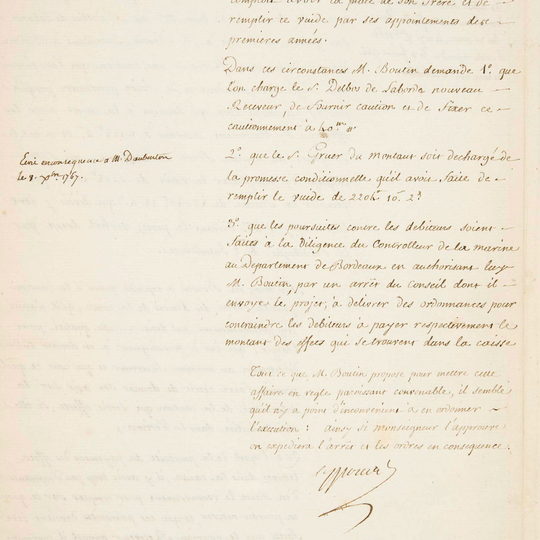 comptoit avoir la place de son frere et de
remplir ce vuide par ses appointemens des
premieres années.
Dans ces circonstances M. Boutin demande 1º que
l'on charge le S. Delbro de Laborda nouveau
Receveur, de fournir caution et de fixer ce
cautionnement à 40.m ₶
2º que le S. Gruer du montaut soit dechargé de
la promesse conditionnelle qu'il avoit faite de
remplir le vuide de 2206₶ 10s 2d
3º que les poursuites contre les debiteurs soient
faites à la diligence du Controlleur de la marine
au Departement de Bordeaux en authorisant
M. Boutin, par un arrêt du Conseil dont il
envoye le projet, à délivrer des ordonnances pour
contraindre les debiteurs à payer respectivement le
montant des effets qui se trouvent dans la caisse
Ecrit en consequence a M. Daubenton
le 8. 7bre 1767.
Tout ce que M. Boutin propose pour mettre cette
affaire en regle paroissant convenable, il semble
qu'il n'y a point d'inconvenient a en ordonner
l'execution : ainsi si monseigneur l'approuve
on expediera l'arrêt et les ordres en consequence.